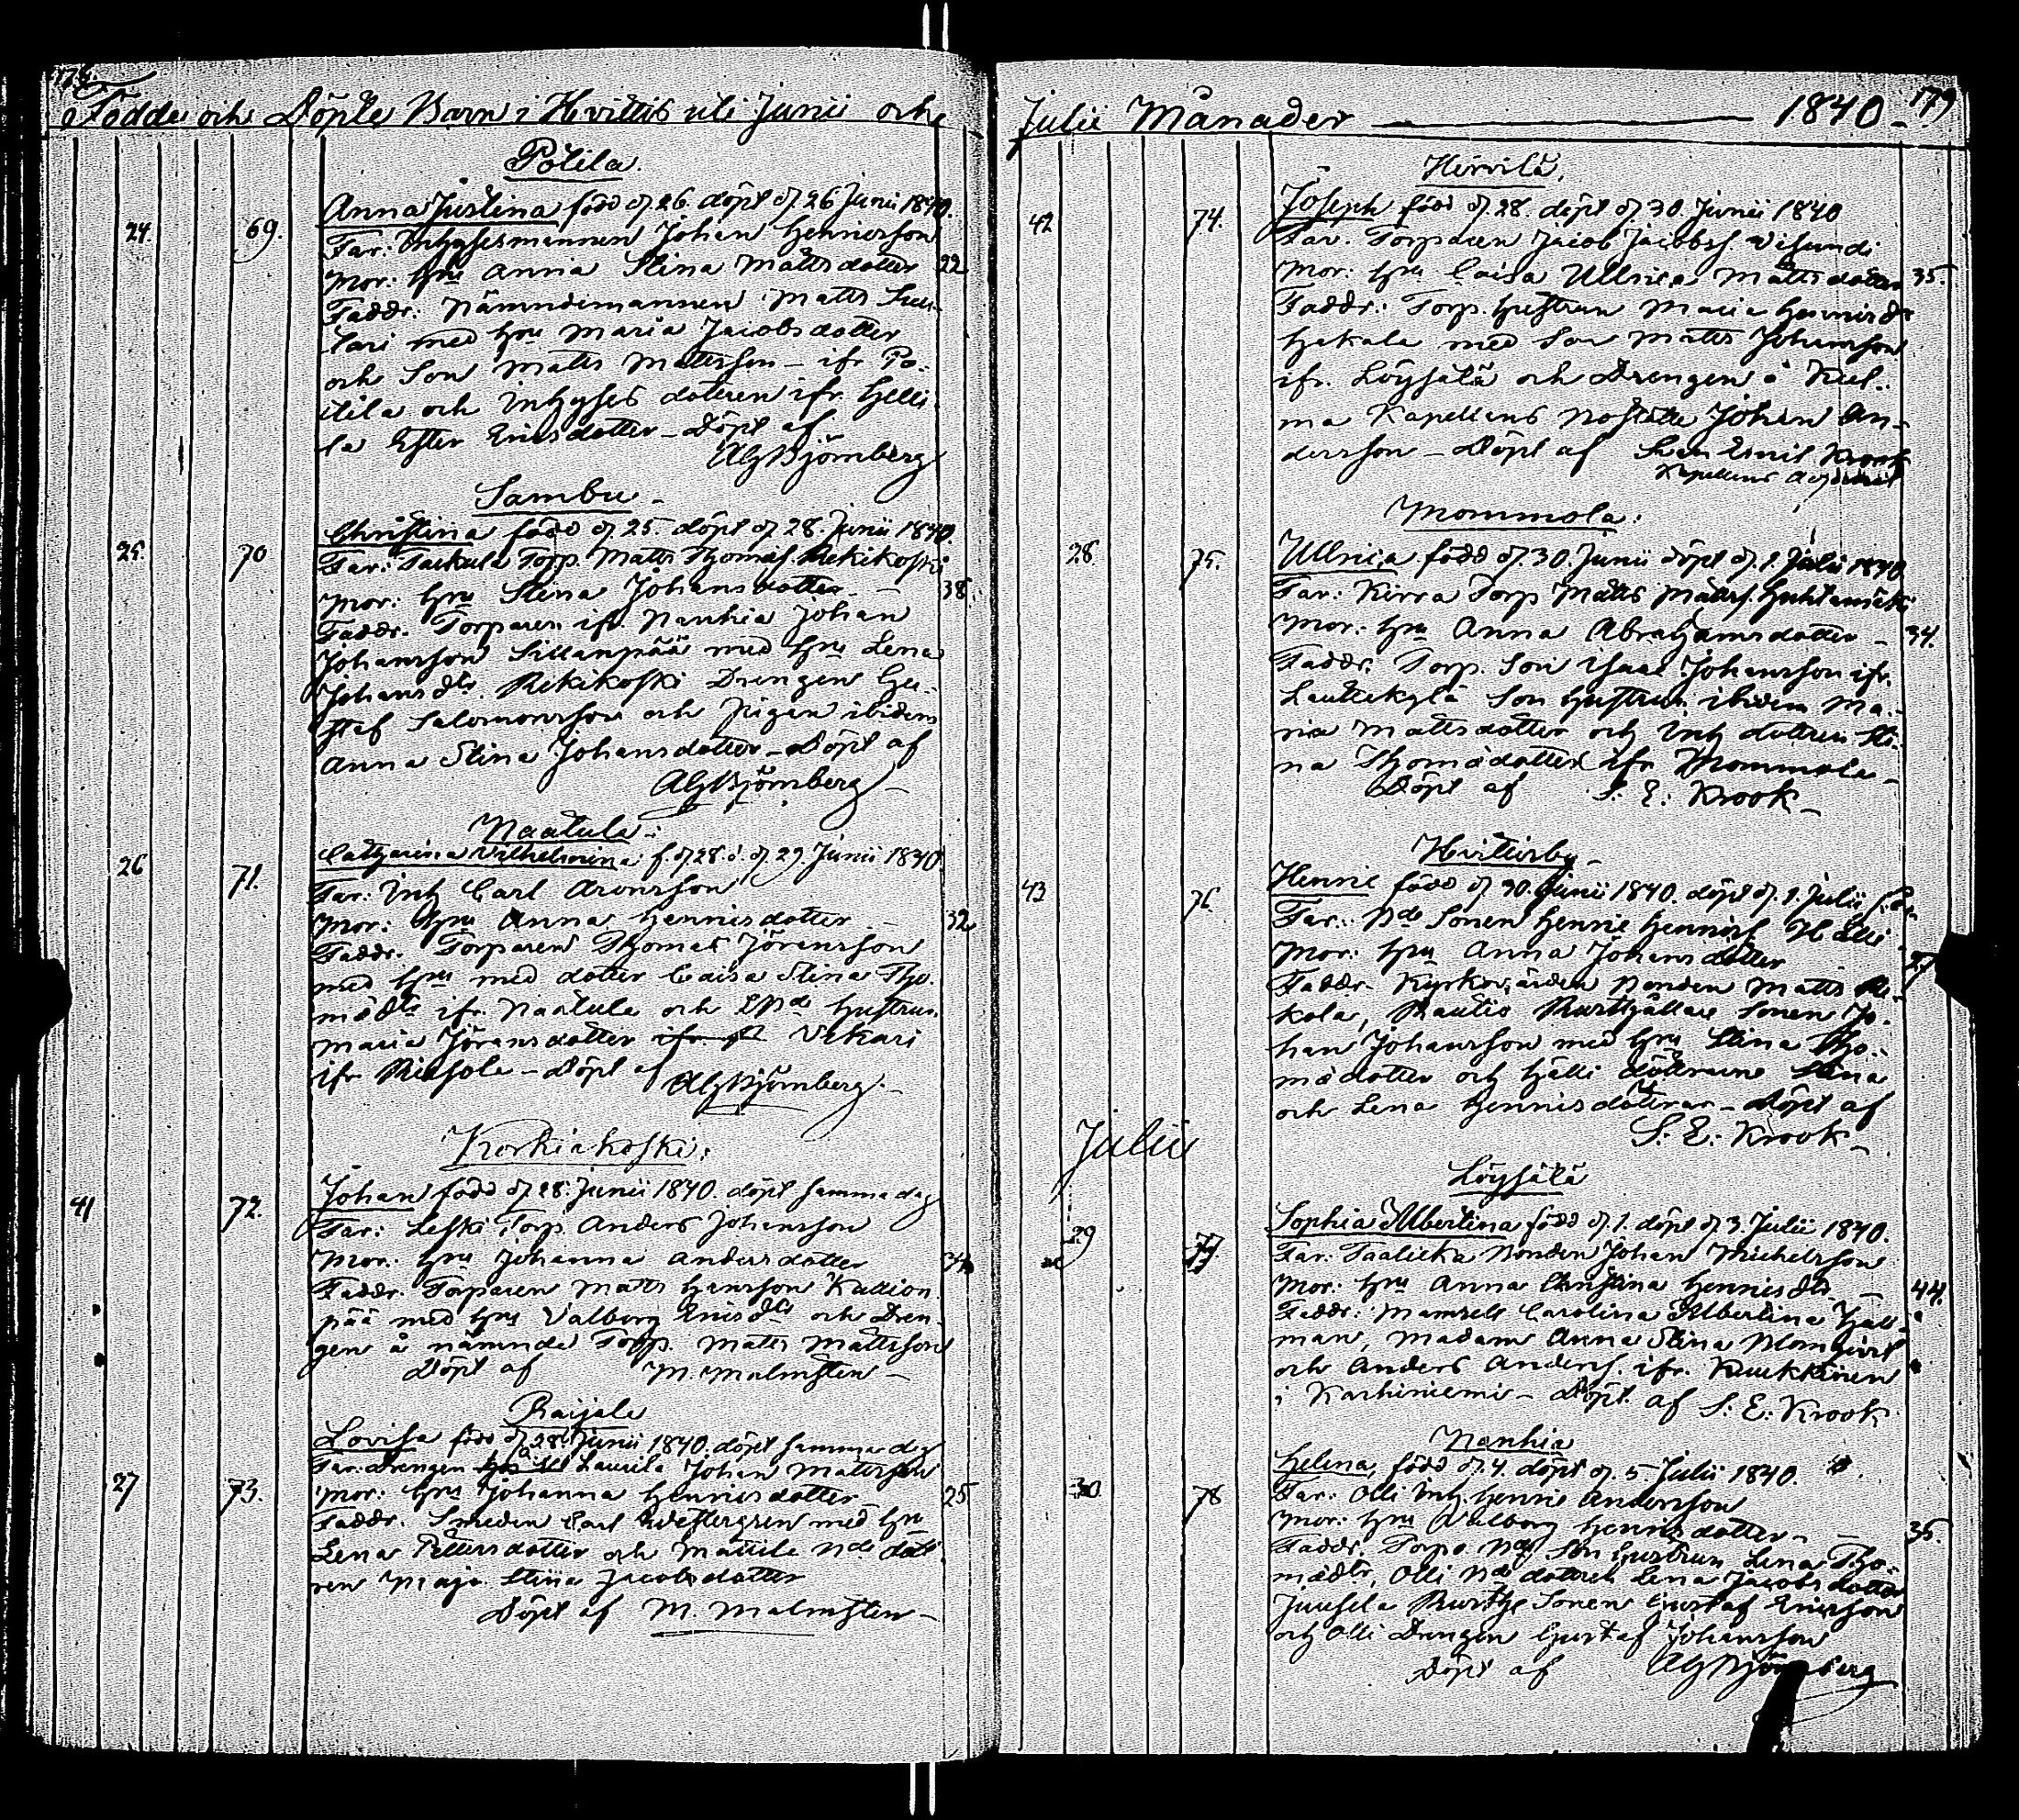 178.
Födde och Döpte Barn i Hvittis uti Junii och
Potila.
24. 69. Anna Justina född d. 26. döpt d. 26 Junii 1840.
Far: Inhysesmannen Johan Henricsson
Mor: Hru Anna Stina Mattsdotter 22
Faddr. Nämndemannen Matts
lari med Hru Maria Jacobsdotter
och Son Matts Mattsson – ifr. Po-
tila och Inhyses dotren ifr. Helli-
la Ester Ericsdotter – Döpt af
AGBjörnberg
Sambu –
25. 70 Christina född d. 25. döpt d. 28. Junii 1840.
Far: Torp. Matts Thomas. Rekikoski
Mor: Hru Stina Johansdotter – 38.
Faddr. Torparen ifr. Nanhia Johan
Johansson Sillanpää med Hru Lena
Johans dtr. Rekikoski Drengen Gu-
staf Salomonsson och Pigan ibidem
Anna Stina Johansdotter – Döpt af
AGBjörnberg –
Naatula:
26 71. Catharina Vilhelmina f. d. 28. d. d. 29. Junii 1840.
Far: Inh Carl Aronsson
Mor: Hru Anna Henricsdotter – 32
Faddr. Torparen Thomas Jöransson
med Hru med dotter Caisa Stina Tho-
mæ dtr ifr. Naatula och Hustrun
Maria Jöransdotter Vikari
ifr. – Döpt af AGBjörnberg. –
Korkiakoski:
41 72. Johan född d. 28. Junii 1840. döpt samma dag
Far: Leski Torp. Anders Johansson
Mor: Hru Johanna Andersdotter
Faddr. Torparen Matts Hansson Kallion
pää med Hru Valborg Ericsdtr och Dren-
gen å nämnde Torp. Matts Mattsson
Döpt af M. Malmsten –
Raijala
27 73. Lovisa född d. 28 Junii 1840. döpt samma dag
Far: Drengen å Laurila Johan Mattsson
Mor: Hru Johanna Henricsdotter 25.
Faddr. Smeden Carl Westergren med Hru
Lena Pettersdotter och Mattila Nde dött-
ren Maja Stina Jacobsdotter
Döpt af M. Malmsten –
Julii Månader — 1840 – 179
Hirvilä.
42 74. Joseph född d. 28. döpt d. 30. Junii 1840
Far. Torparen Jacob Jacobss. Visundi
Mor: Hru Caisa Ullrica Mattsdotter 35.
Faddr: Torp. Hustrun Maria Henricsdr
Hakala med Son Matts Johansson
ifr. Löysälä och Drengen å Kiul-
ma Kapellans Boställe Johan An-
dersson – Döpt af Sven Emil Krook
Mommola:
28. 75. Ullrica född d. 30. Junii döpt d. 1. Julii 1840
Far: Kirra Torp Matts Mattss. Huhtamäki
Mor: Hru Anna Abrahamsdotter – 34.
Faddr. Torp. Son Isaac Johansson ifr.
Lauttakylä Son Hustrun ibidem Ma-
ria Mattsdotter och Inh dottren Sti-
na Thomædotter ifr Mommola –
Döpt af S. E. Krook –
Hvittisby –
43 76. Henric född d. 30. Junii 1840. döpt d. 1. Julii
Far: Nde Sonen Henric Henricss Hälli
Mor: Hru Anna Johansdotter
Faddr. Kyrkovärden Bonden Matts
kola, Rautio Rusthållare Sonen Jo-
han Johansson med Hru Stina Tho-
mædotter och Hälli döttrarne Stina
och Lena Henricsdöttrar – döpt af
S: E: Krook –
Julii
Löysälä
29 77. Sophia Albertina född d. 1. döpt d. 3. Julii 1840.
Far: Bonden Johan Michelsson
Mor: Hru Anna Christina Henricsdtr. – 44.
Faddr: Mamsell Carolina Albertina
man, Madam Anna Stina Blomqvist
och Anders Anderss. ifr. Kuukkinen
i Karhiniemi – Döpt. af S: E: Krook.
Nanhia
30 78 Helena, född d. 4. döpt d. 5 Julii 1840.
Far: Olli Inh. Henric Andersson
Mor: Hru Valborg Henricsdotter – – 35.
Faddr. Torpa Nde Son Hustrun Lena Tho-
mædtr, Olli Nde dottren Lena Jacobsdotter
Juusela Rusth Sonen Gustaf Ericsson
och Olli Drengen Gustaf Johansson
Döpt af AGBjörnberg